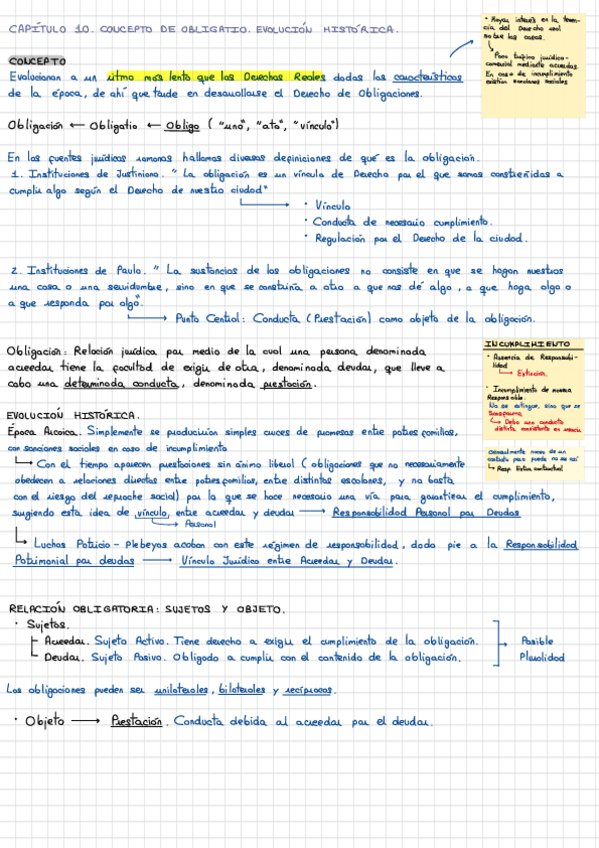 CAPÍTULO 10. CONCEPTO DE OBLIGATIO. EVOLUCIÓN HISTÓRICA.
• Mayor interés en la tenen-
cia del Derecho real
sobre las cosas.
Poco tráfico jurídico-
comercial mediante acuerdos.
En caso de incumplimiento
existían sanciones sociales
CONCEPTO
Evolucionan a un ritmo más lento que los Derechos Reales dadas las características
de la época, de ahí que tarde en desarrollarse el Derecho de Obligaciones.
Obligación ← Obligatio ← Obligo ( "uno", "ato", "vínculo")
En las fuentes jurídicas romanas hallamos diversas definiciones de qué es la obligación.
1. Instituciones de Justiniano. " La obligación es un vínculo de Derecho por el que somos constreñidos a
cumplir algo según el Derecho de nuestra ciudad"
• Vínculo
• Conducta de necesario cumplimiento.
• Regulación por el Derecho de la ciudad.
2. Instituciones de Paulo. " La sustancias de las obligaciones no consiste en que se hagan nuestras
una cosa o una servidumbre, sino en que se constriña a otro a que nos dé algo, a que haga algo o
a que responda por algo".
Punto Central: Conducta (Prestación) como objeto de la obligación.
Obligación: Relación jurídica por medio de la cual una persona denominada
acreedor tiene la facultad de exigir de otra, denominada deudor, que lleve a
cabo una determinada conducta, denominada prestación.
INCUMPLIMIENTO
• Ausencia de Responsabi-
lidad
→ Extinción.
• Incumplimiento de manera
Responsable.
No se extingue, sino que se
transforma
→ Debe una conducta
distinta
Generalmente nacen de un
contrato pero puede no ser así
→ Resp. Extracontractual
EVOLUCIÓN HISTÓRICA.
Época Arcaica. Simplemente se producirían simples cruces de promesas entre paterfamilias,
con sanciones sociales en caso de incumplimiento
→ Con el tiempo aparecen prestaciones sin ánimo liberal ( obligaciones que no necesariamente
obedecen a relaciones directas entre paterfamilias, entre distintos escalones, y no basta
con el riesgo del reproche social) por lo que se hace necesario una vía para garantizar el cumplimiento,
surgiendo esta idea de vínculo, entre acreedor y deudor → Responsabilidad Personal por Deudas
→ Personal
→ Luchas Patricio - Plebeyos acaban con este régimen de responsabilidad, dado pie a la Responsabilidad
Patrimonial por deudas → Vínculo Jurídico entre Acreedor y Deudor.
RELACIÓN OBLIGATORIA: SUJETOS Y OBJETO.
• Sujetos.
Acreedor. Sujeto Activo. Tiene derecho a exigir el cumplimiento de la obligación.
Deudor. Sujeto Pasivo. Obligado a cumplir con el contenido de la obligación.
→ Posible
Pluralidad
Las obligaciones pueden ser unilaterales, bilaterales y recíprocas.
• Objeto → Prestación. Conducta debida al acreedor por el deudor.